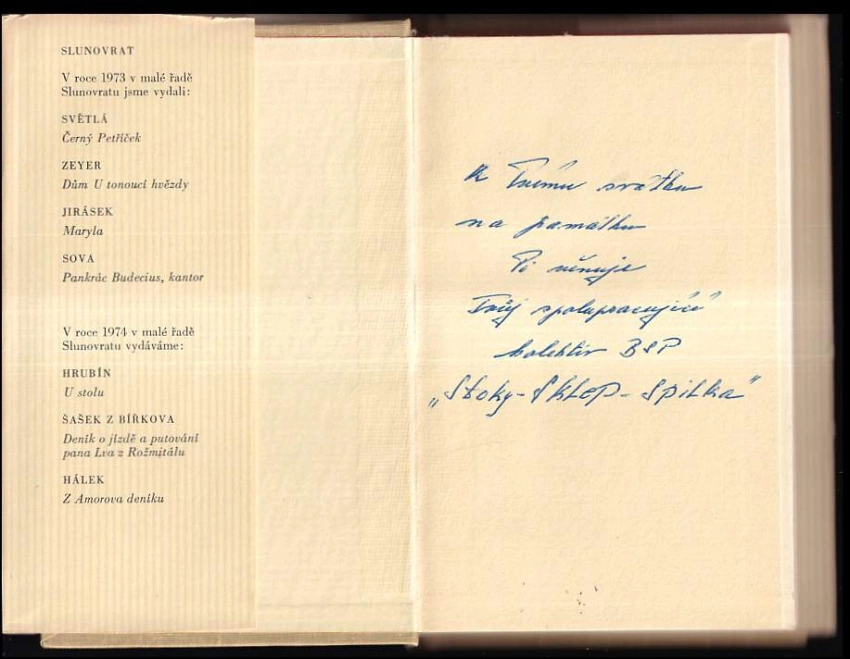 SLUNOVRAT
V roce 1973 v malé řadě
Slunovratu jsme vydali:
SVĚTLÁ
Černý Petříček
ZEYER
Dům U tonoucí hvězdy
JIRÁSEK
Maryla
SOVA
Pankrác Budecius, kantor
V roce 1974 v malé řadě
Slunovratu vydáváme:
HRUBÍN
U stolu
ŠAŠEK Z BÍŘKOVA
Deník o jízdě a putování
pana Lva z Rožmitálu
HÁLEK
Z Amorova deníku
K Tvému svátku
na památku
Ti věnuje
Tvůj spolupracující
kolektiv BSP
„Stoky-Sklep-Spilka"